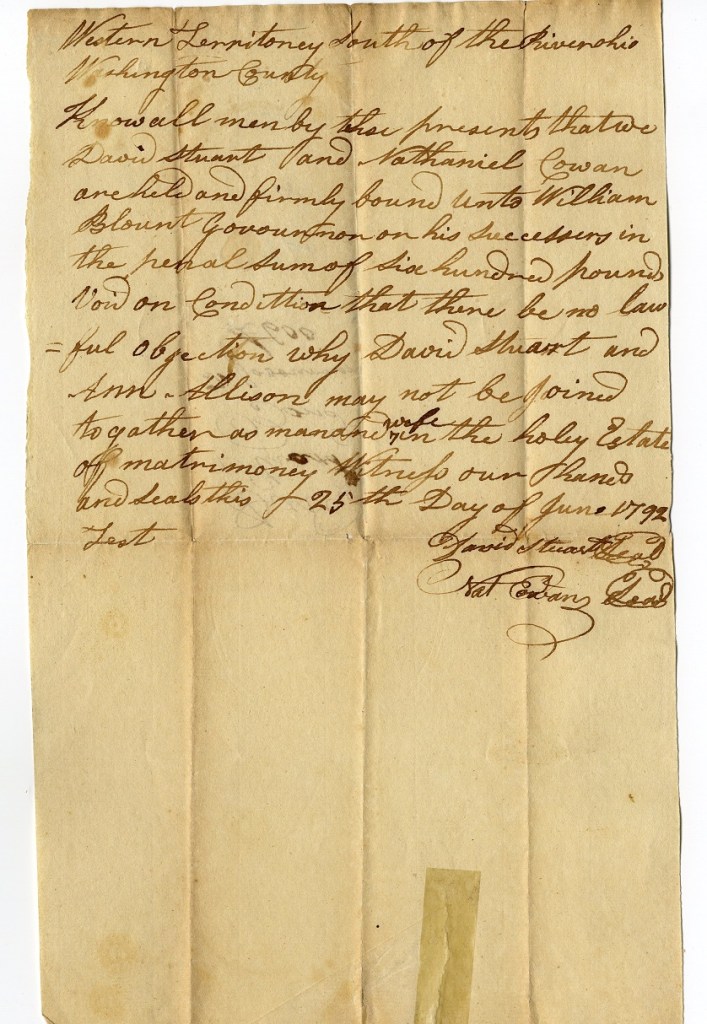 Western Territoney South of the Riverohio
Washington County
Know all men by these presents that we
David Stuart and Nathaniel Cowan
are held and firmly bound unto William
Blount Govournor or his successers in
the penal sum of six hundred pounds
Void on Condittion that there be no law
=ful objection why David Stuart and
Ann Allison may not be Joined
togather as man and wife in the holey Estate
of matrimoney Witness our hands
and seals this 25th Day of June 1792
Test David Stuart Seal
Nat Cowan Seal